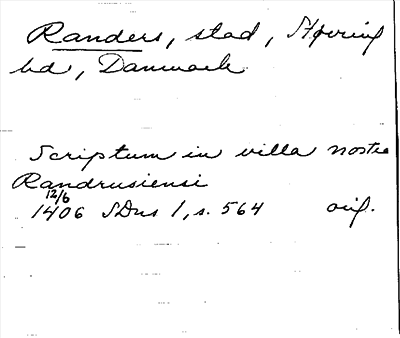 Randers, stad, Støvring
hd, Danmark
Scriptum in villa nostra
Randrusiensi
12/6
1406 SDns 1, s. 564 orig.